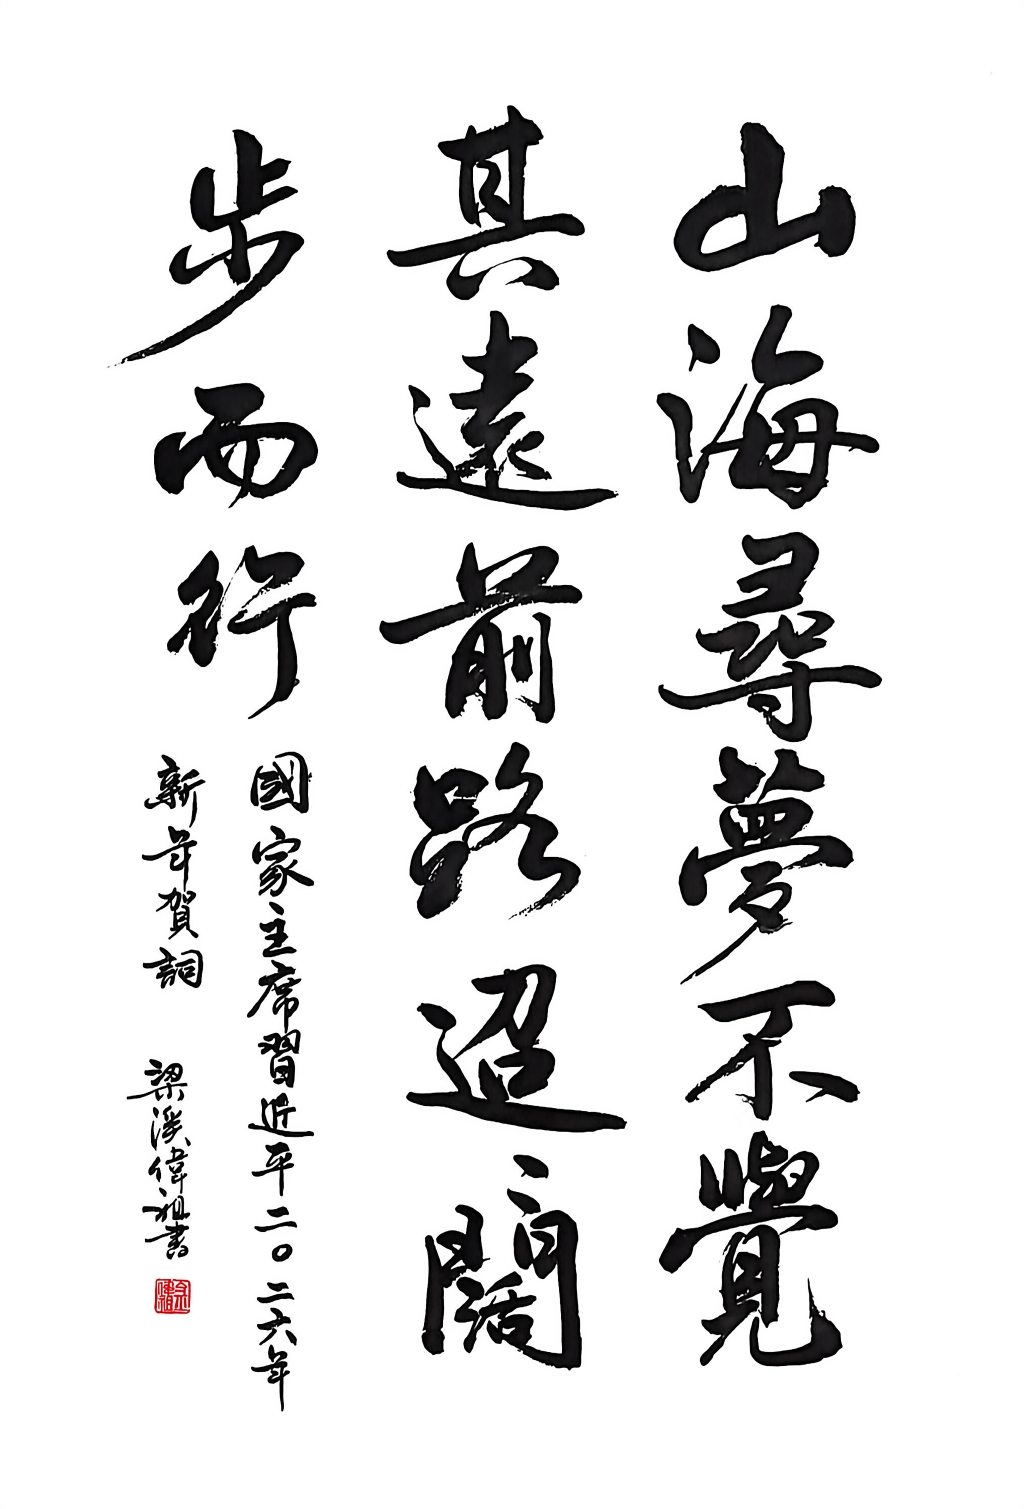 山海尋夢不覺
其遠前路迢闊
步而行
國家主席習近平二〇二六年
新年賀詞
梁溪偉祖書